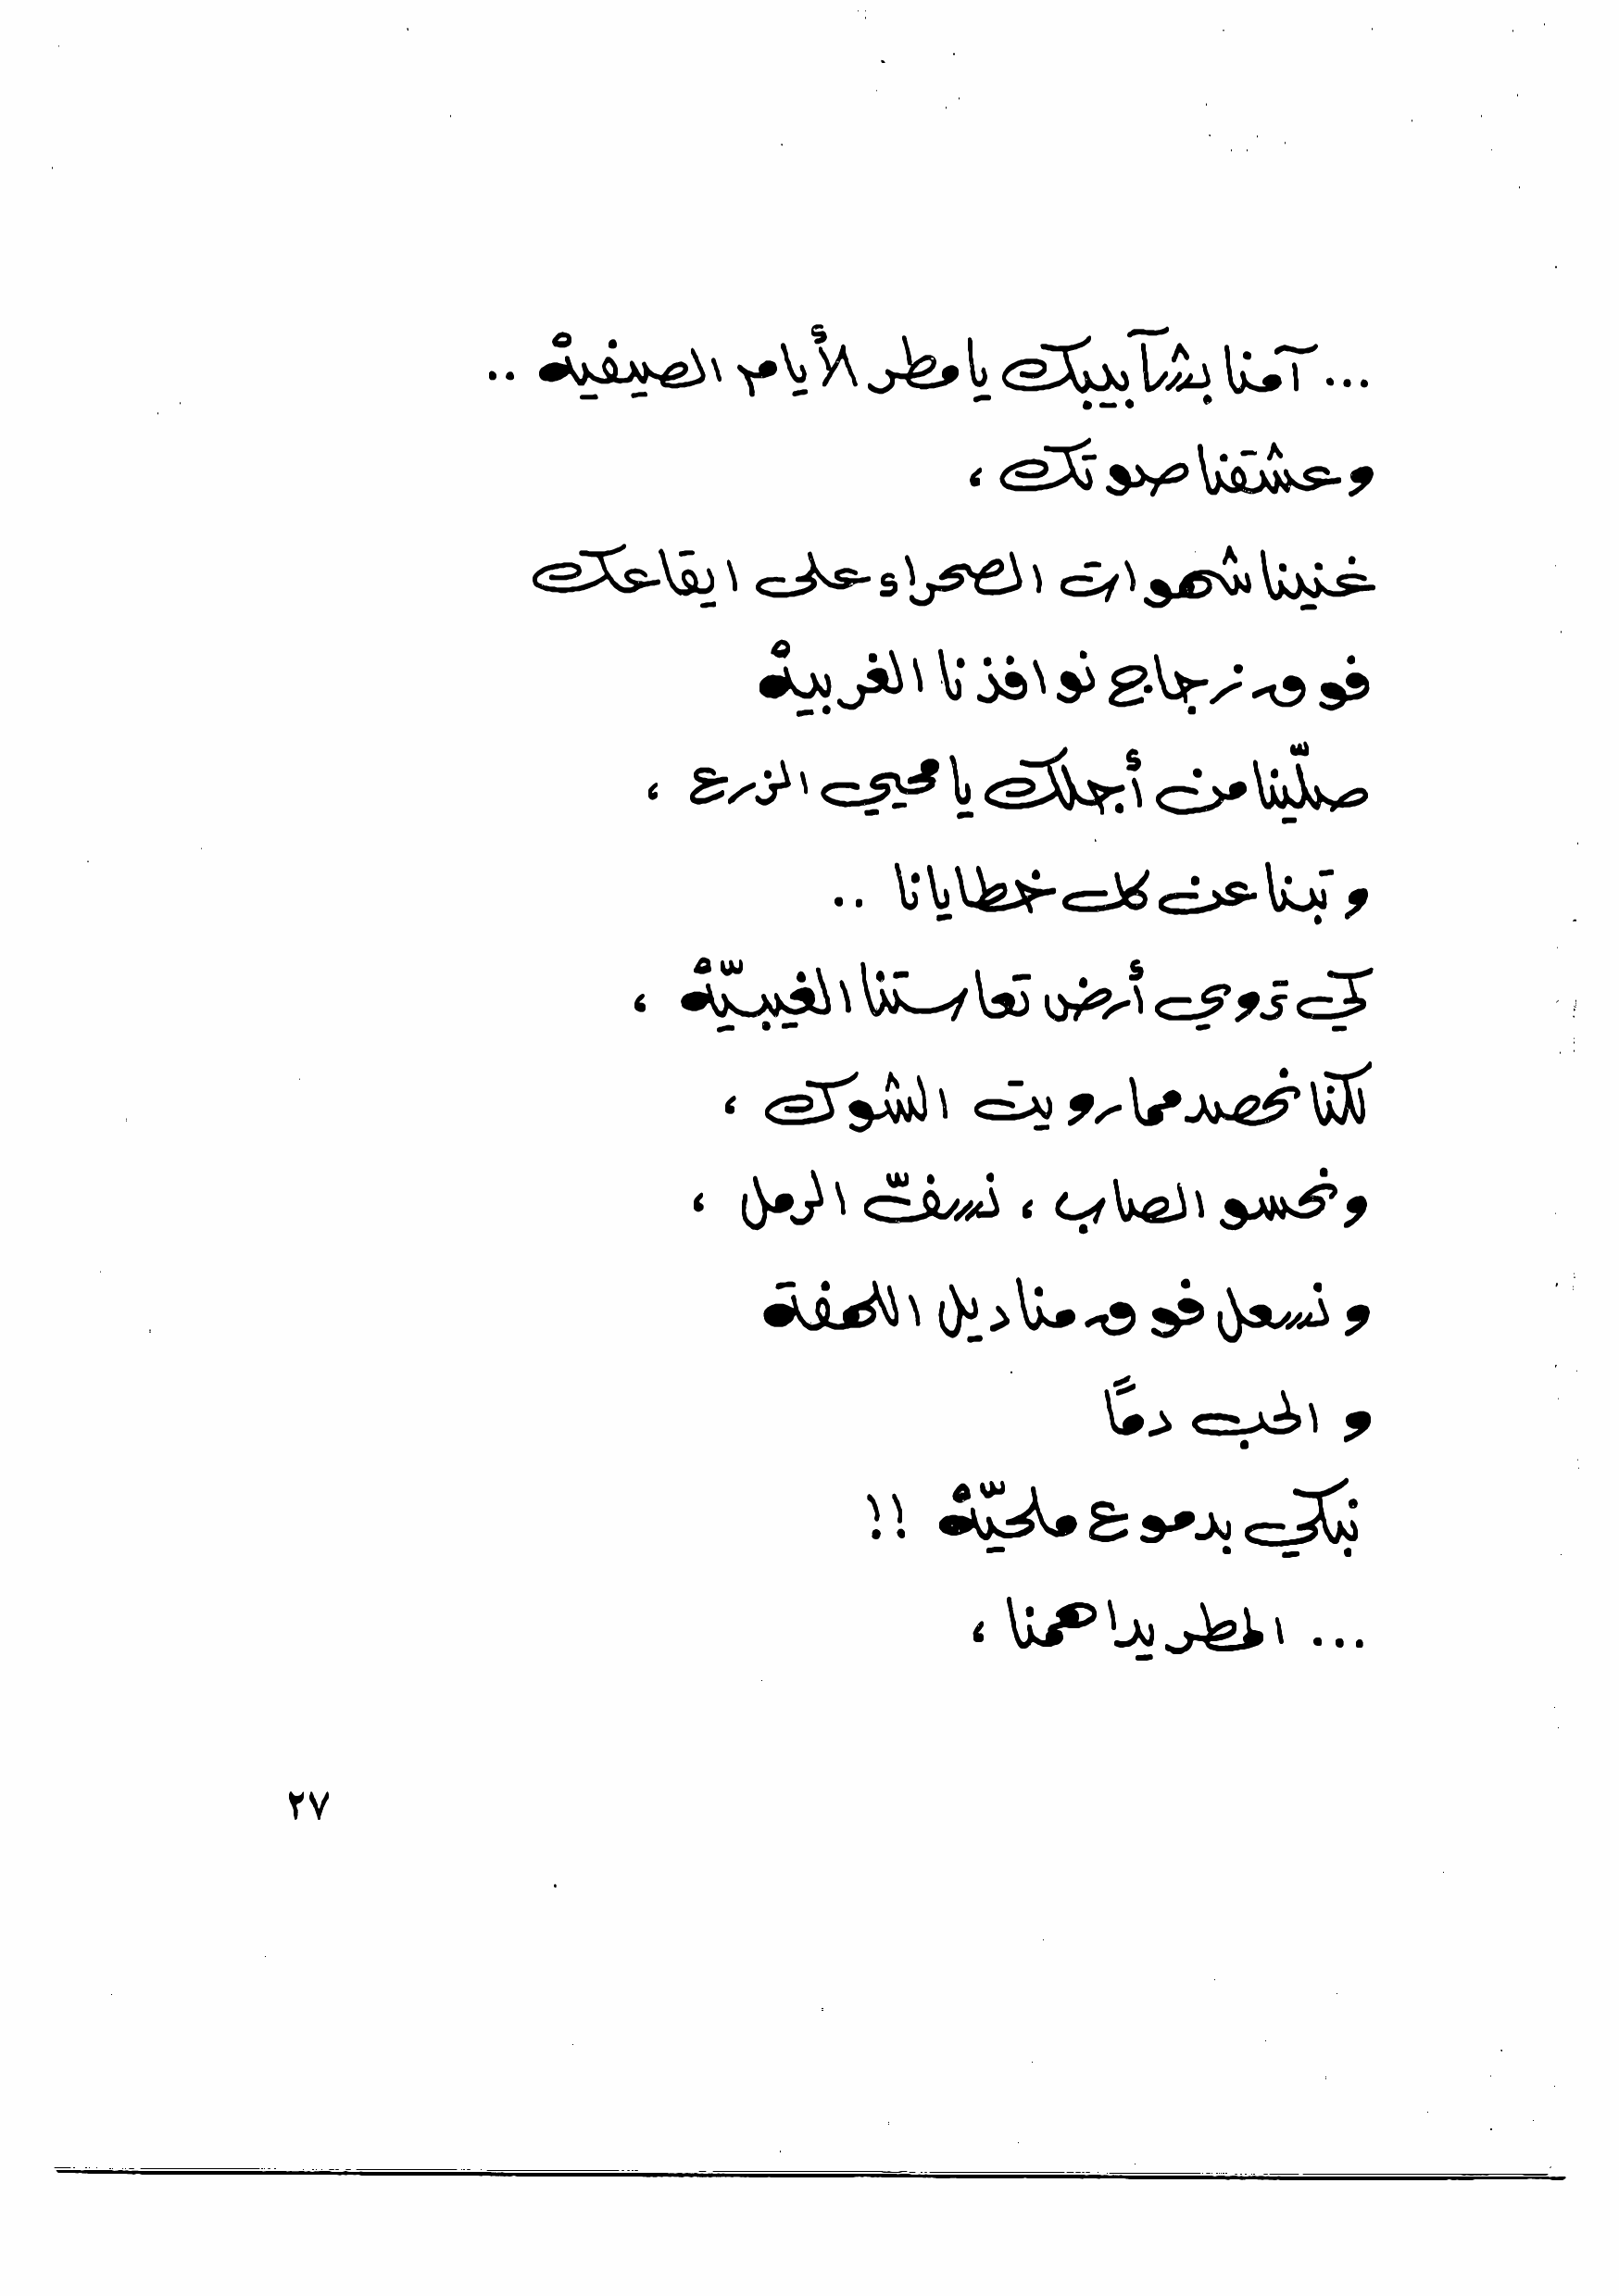 ... آمنا بشآبيبك يا مطر الأيام الصيفيهْ ..
وعشقنا صوتك ،
غنينا شهوات الصحراء على ايقاعك
فوق زجاج نوافذنا الغربيهْ
صلّينا من أجلك يا محيي الزرع ،
وتبنا عن كل خطايانا ..
كي تروي أرض تعاستنا الغيبيّهْ ،
لكنا نحصد مما رويت الشوك ،
ونحسو الصاب ، نسفّ الرمل ،
ونسعل فوق مناديل اللهفة
والحب دمًا
نبكي بدموع ملحيّهْ !!
... المطر يداهمنا ،
٢٧